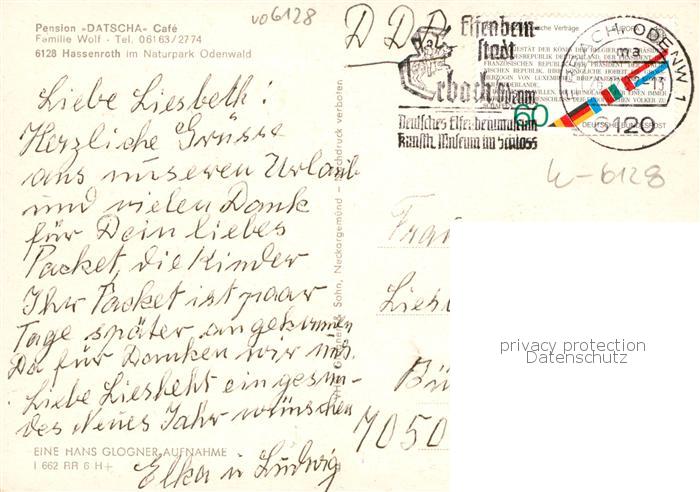 Pension »DATSCHA« Café
Familie Wolf - Tel. 06163/2774
6128 Hassenroth im Naturpark Odenwald
vo6128
DDR
Liebe Liesbeth!
Herzliche Grüsse
aus unseren Urlaub
und vielen Dank
für Dein liebes
Packet, die Kinder
Ihr Packet ist paar
Tage später angekommen
Da für Danken wir uns.
Liebe Liesbeht ein gesun-
des Neues Jahr wünschen
Elka u Ludwig
EINE HANS GLOGNER-AUFNAHME
I 662 RR 6 H+
Sohn, Neckargemünd - Nachdruck verboten
Elfenbein
stadt
Erbach
Deutsches Elfenbeinmuseum
Kunsth. Museum im Schloss
60
DEUTSCHE BUNDESPOST
ERBACH, ODENW 1
ma
6120
k-6128
Frau
Lies
Bü
7050
privacy protection
Datenschutz